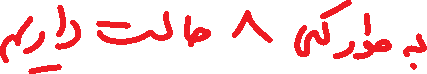 به طور کلی ۸ حالت داریم